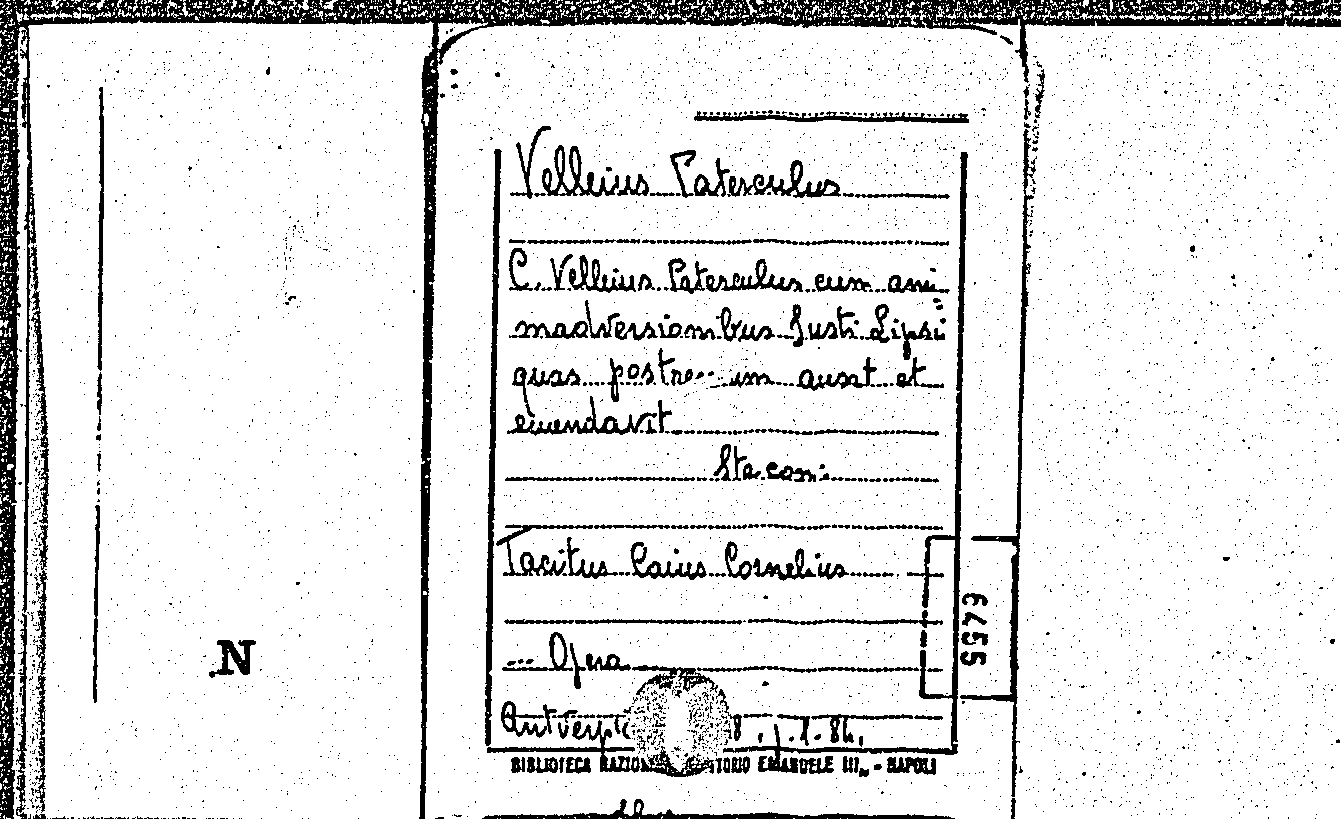 Velleius Paterculus
C. Velleius Paterculus cum ani
madversionibus Justi Lipsi
quas postre um auxt et
emendavit
Sta con:
Tacitus Caius Cornelius
... Opera
N
6455
BIBLIOTECA EMANUELE III, - NAPOLI